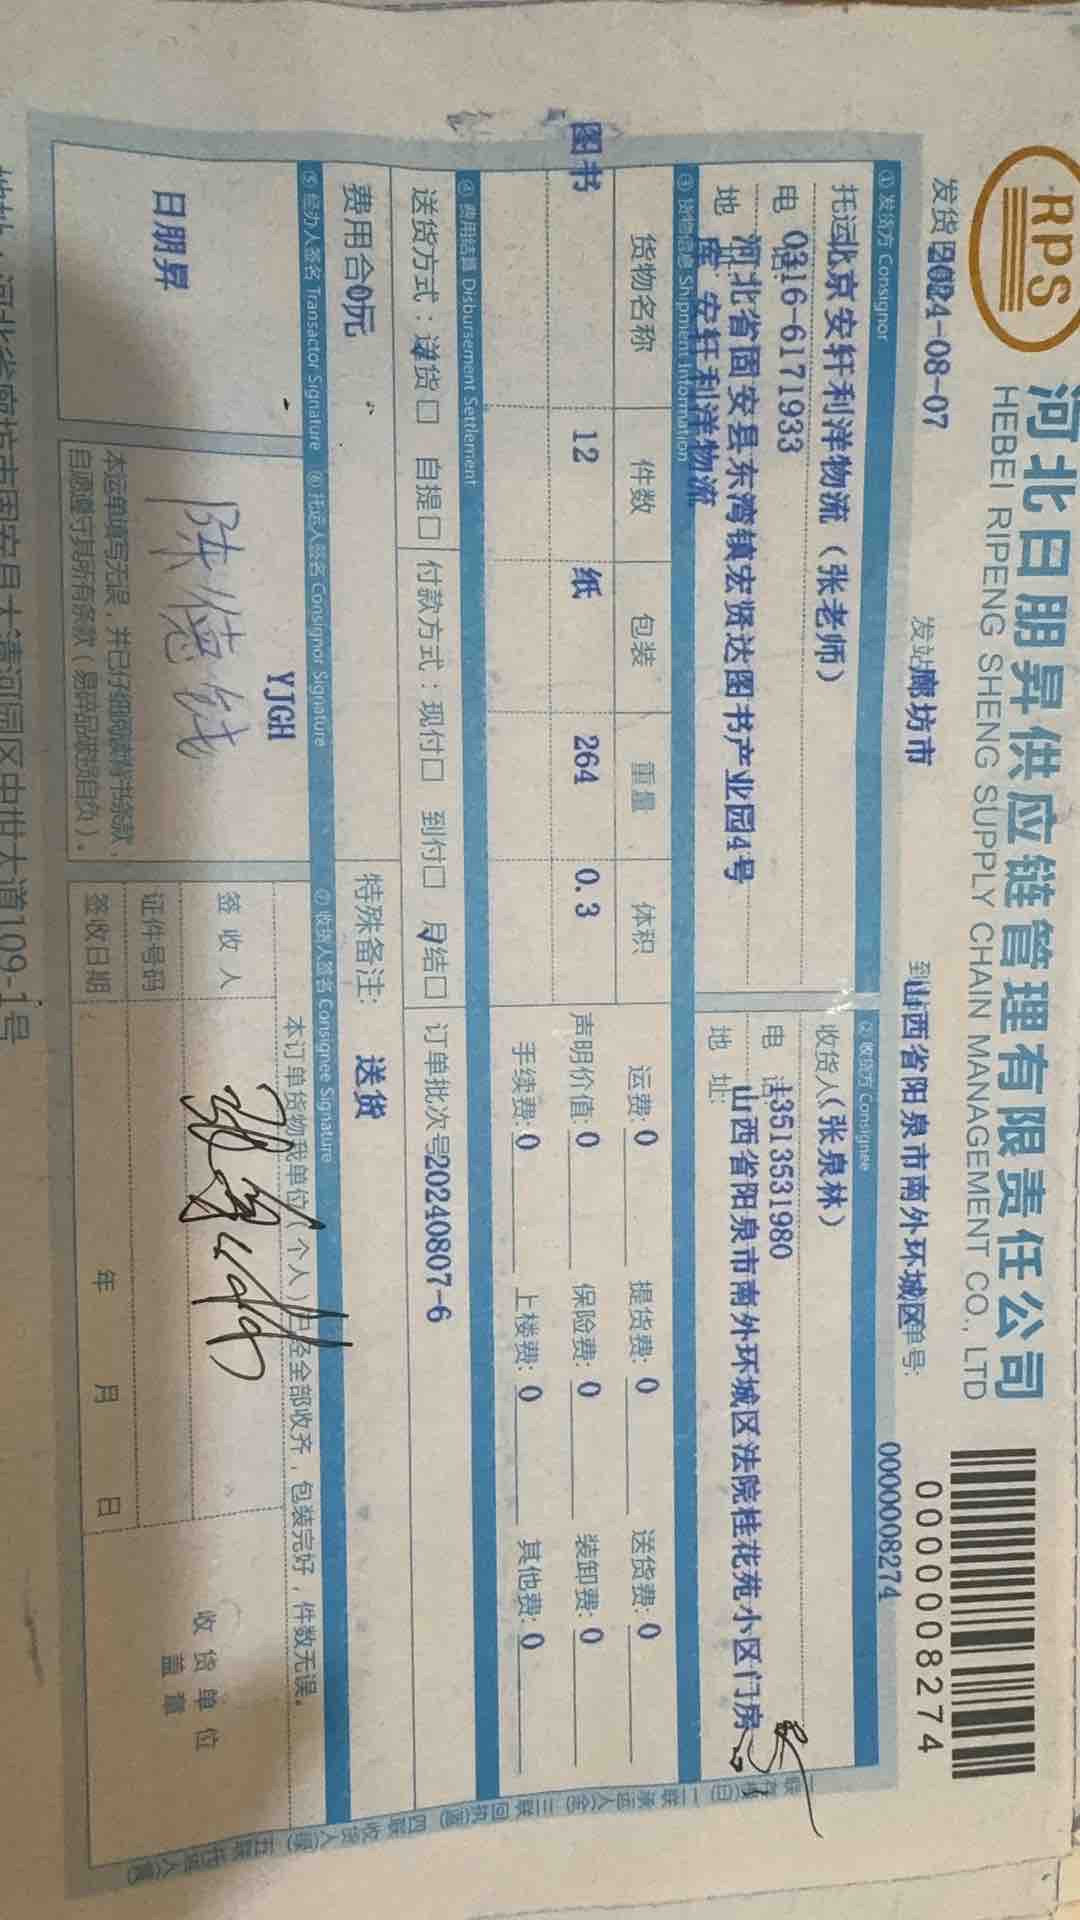 RPS
河北日朋昇供应链管理有限责任公司
HEBEI RIPENG SHENG SUPPLY CHAIN MANAGEMENT CO., LTD
0000008274
发货日期2024-08-07 发站廊坊市 到站山西省阳泉市南外环城区 单号: 0000008274
① 发货方 Consignor ② 收货方 Consignee
托运 北京安轩利洋物流（张老师） 收货人（张泉林）
电话:0316-6171933 电话:13513531980
地址:河北省固安县东湾镇宏贤达图书产业园4号库 安轩利洋物流 地址:山西省阳泉市南外环城区法院桂花苑小区门房
③ 货物信息 Shipment Information
货物名称 件数 包装 重量 体积 运费: 0 提货费: 0 送货费: 0
图书 12 纸 264 0.3 声明价值: 0 保险费: 0 装卸费: 0
手续费: 0 上楼费: 0 其他费: 0
④ 费用结算 Disbursement Settlement
送货方式：送货□ 自提□ 付款方式：现付□ 到付□ 月结□ 订单批次号20240807-6
费用合 0元 特殊备注: 送货
⑤ 经办人签名 Transactor Signature ⑥ 托运人签名 Consignor Signature ⑦ 收货人签名 Consignee Signature
日朋昇
YJGH
本订单货物我单位（个人）已经全部收齐，包装完好，件数无误。
签收人
证件号码
签收日期： 年 月 日
收货单位
盖章
本运单填写无误，并已仔细阅读背书条款，
自愿遵守其所有条款（易碎品破损自负）。
地址：河北省廊坊市固安县大清河园区中柑大道109-1号